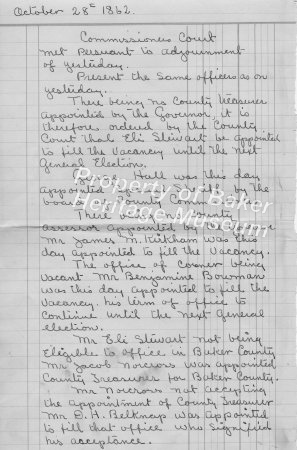 October 28th 1862.
Commissioners Court
met Persuant to adjournment
of yesterday.
Present the same officers as on
yesterday.
There being no County Treasurer
appointed by the Governor, it is
therefore ordered by the County
Court that Eli Stewart be appointed
to fill the Vacancy until the next
General Election.
Hall was this day
appointed by the
board of County Comm
There being no County
assessor appointed by
Mr James M. Kirkham was this
day appointed to fill the Vacancy.
The office of Coroner being
vacant Mr Benjamine Bowman
was this day appointed to fill the
Vacancy, his term of office to
continue until the next General
election.
Mr Eli Stewart not being
Eligible to office in Baker County
Mr Jacob Norcross was appointed
County Treasurer for Baker County.
Mr Norcross not accepting
the appointment of County Treasurer
Mr D. H. Belknap was appointed
to fill that office who signified
his acceptance.
Property of Baker
Heritage Museum